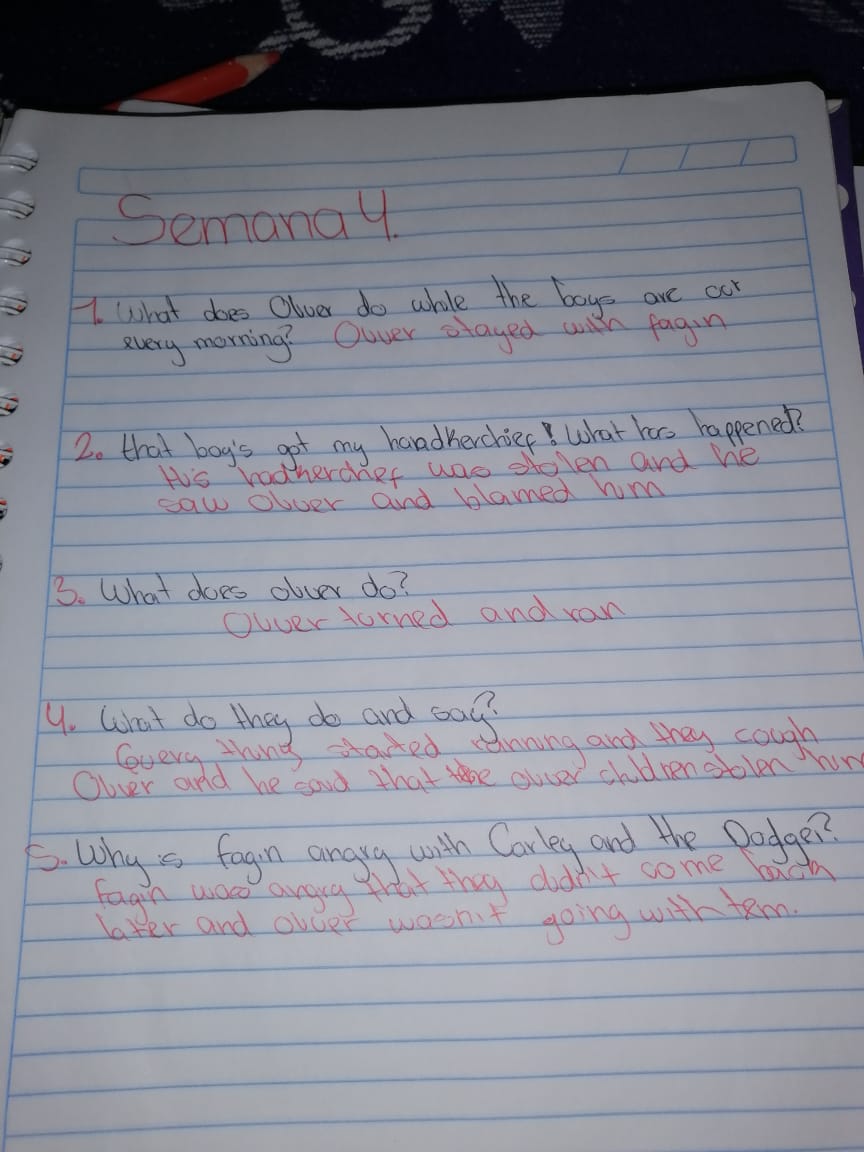 Semana 4.
1. What does Oliver do while the boys are out
every morning? Oliver stayed with fagin
2. that boy's got my handkerchief! What has happened?
His hadherchef was stolen and he
saw Oliver and blamed him
3. What does oliver do?
Oliver turned and ran
4. What do they do and say?
every thing started running and they cough
Oliver and he said that the oliver children stolen him
5. Why is fagin angry with Carley and the Dodger?
fagin was angry that they didn't come back
later and oliver wasn't going with tem.